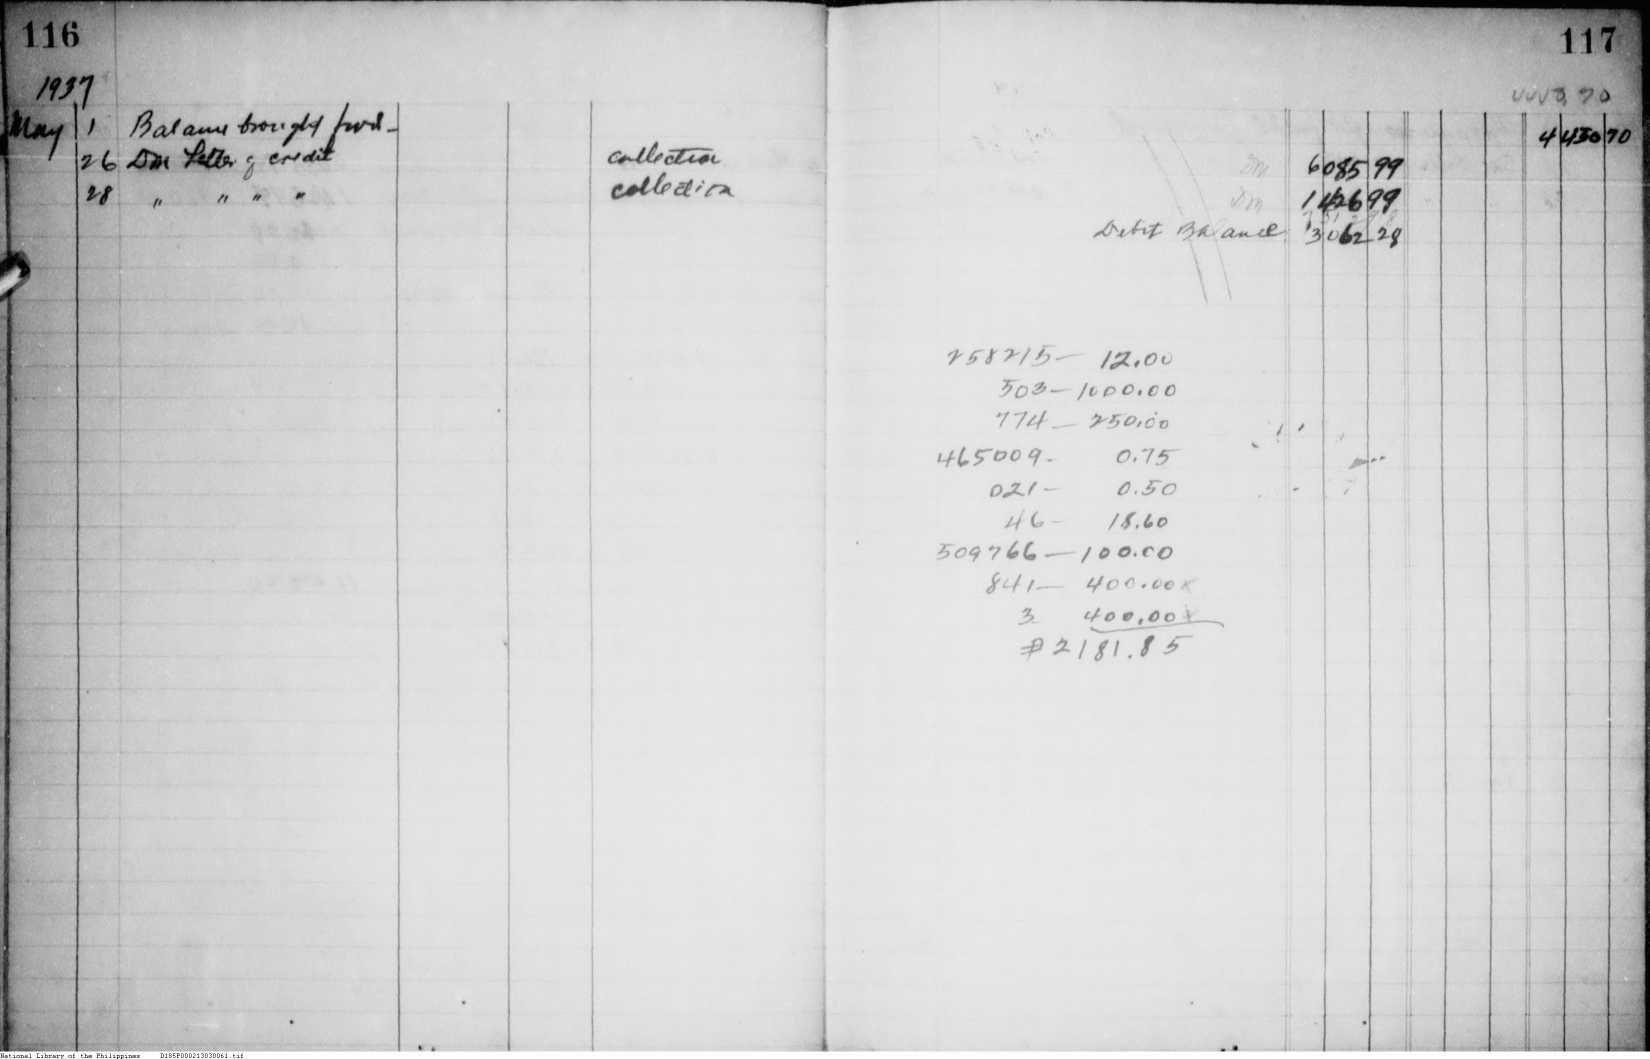 116
117
1937
May 1 Balance brought fwd - 4 450 70
26 DM Letter of credit collection DM 6085 99
28 " " " " collection DM 1426 99
Debit Balance 3062 28
258215 - 12.00
503 - 1000.00
774 - 250.00
465009 - 0.75
021 - 0.50
46 - 18.60
509766 - 100.00
841 - 400.00 x
3 400.00 x
₱2181.85
National Library of the Philippines D185P000213030061.tif